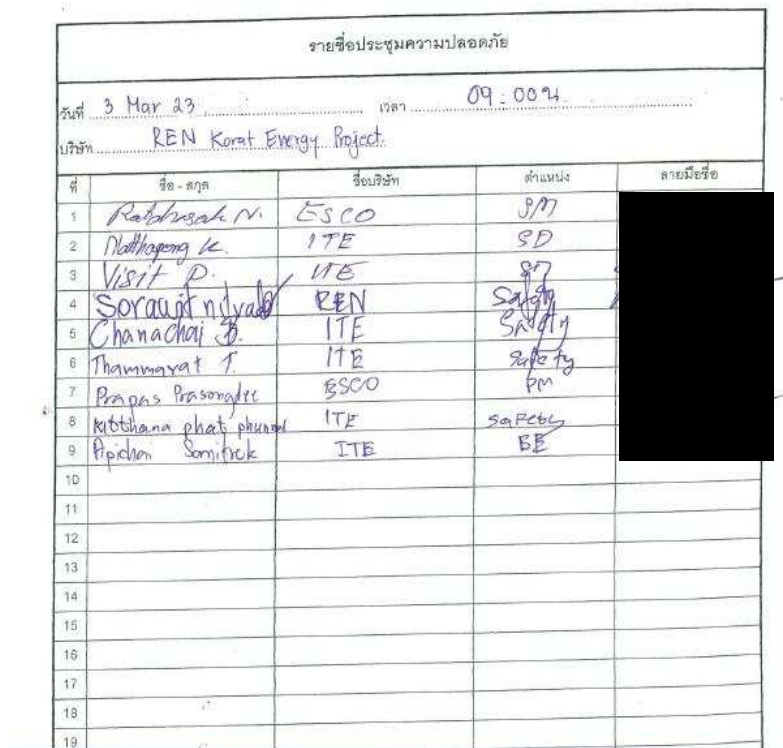 รายชื่อประชุมความปลอดภัย
วันที่ 3 Mar 23 เวลา 09:00น.
บริษัท REN Korat Energy Project.
ที่ ชื่อ - สกุล ชื่อบริษัท ตำแหน่ง ลายมือชื่อ
1 N. ESCO SM
2 Natthapong K. ITE SD
3 Visit P. ITE SM
4 REN Safety
5 Chanachai ITE Safety
6 Thammarat T. ITE Safety
7 Prapas ESCO PM
8 Kitthana phat ITE Safety
9 Apichai ITE BE
10
11
12
13
14
15
16
17
18
19